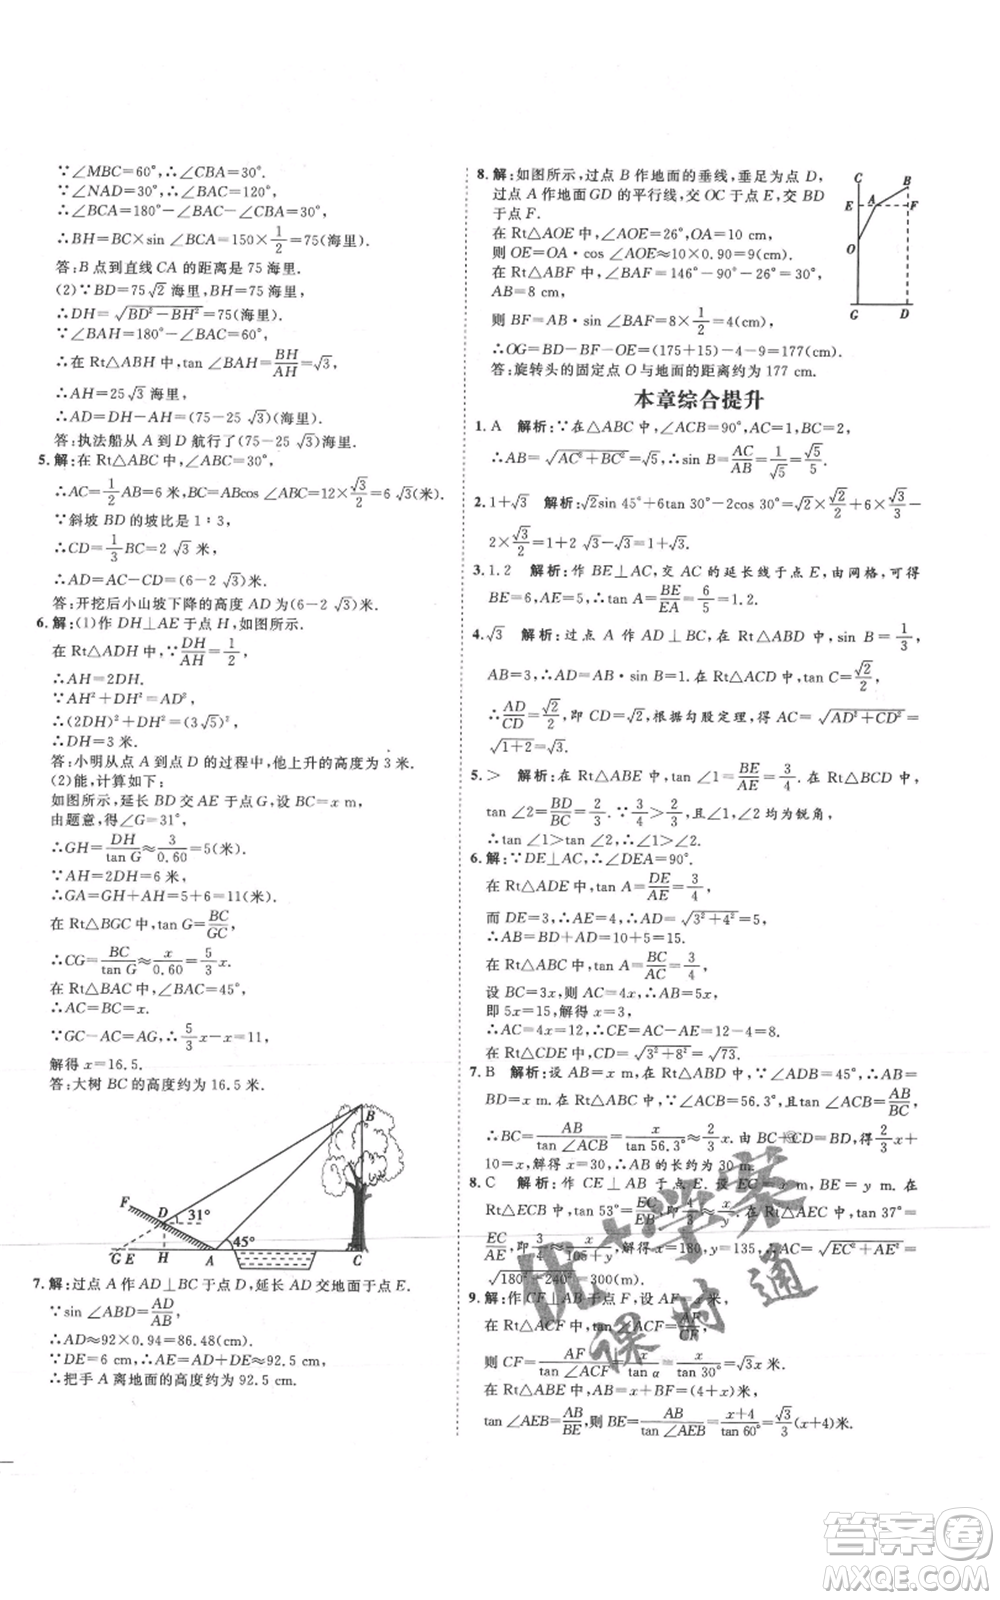 ∵∠MBC=60°,∴∠CBA=30°.
∵∠NAD=30°,∴∠BAC=120°.
∴∠BCA=180°-∠BAC-∠CBA=30°.
∴BH=BC×sin ∠BCA=150×1/2=75(海里).
答:B 点到直线 CA 的距离是 75 海里.
(2)∵BD=75√2 海里,BH=75 海里,
∴DH=√(BD²-BH²)=75(海里).
∵∠BAH=180°-∠BAC=60°,
∴在 Rt△ABH 中,tan ∠BAH=BH/AH=√3,
∴AH=25√3 海里.
∴AD=DH-AH=(75-25√3)(海里).
答:执法船从 A 到 D 航行了(75-25√3)海里.
5.解:在 Rt△ABC 中,∠ABC=30°,
∴AC=1/2AB=6 米,BC=ABcos ∠ABC=12×√3/2=6√3(米).
∵斜坡 BD 的坡比是 1∶3,
∴CD=1/3BC=2√3 米,
∴AD=AC-CD=(6-2√3)米.
答:开挖后小山坡下降的高度 AD 为(6-2√3)米.
6.解:(1)作 DH⊥AE 于点 H,如图所示.
在 Rt△ADH 中,∵DH/AH=1/2,
∴AH=2DH.
∵AH²+DH²=AD²,
∴(2DH)²+DH²=(3√5)²,
∴DH=3 米.
答:小明从点 A 到点 D 的过程中,他上升的高度为 3 米.
(2)能,计算如下:
如图所示,延长 BD 交 AE 于点 G,设 BC=x m,
由题意,得∠G=31°,
∴GH=DH/tan G≈3/0.60=5(米).
∵AH=2DH=6 米,
∴GA=GH+AH=5+6=11(米).
在 Rt△BGC 中,tan G=BC/GC,
∴CG=BC/tan G≈x/0.60=5/3x.
在 Rt△BAC 中,∠BAC=45°,
∴AC=BC=x.
∵GC-AC=AG,∴5/3x-x=11,
解得 x=16.5.
答:大树 BC 的高度约为 16.5 米.
B
F
D
31°
45°
G E H A C
7.解:过点 A 作 AD⊥BC 于点 D,延长 AD 交地面于点 E.
∵sin ∠ABD=AD/AB,
∴AD≈92×0.94=86.48(cm).
∵DE=6 cm,∴AE=AD+DE≈92.5 cm,
∴把手 A 离地面的高度约为 92.5 cm.
8.解:如图所示,过点 B 作地面的垂线,垂足为点 D,
过点 A 作地面 GD 的平行线,交 OC 于点 E,交 BD
于点 F.
在 Rt△AOE 中,∠AOE=26°,OA=10 cm,
则 OE=OA·cos ∠AOE≈10×0.9=9(cm).
在 Rt△ABF 中,∠BAF=146°-90°-26°=30°,
AB=8 cm,
则 BF=AB·sin ∠BAF=8×1/2=4(cm),
∴OG=BD-BF-OE=(175+15)-4-9=177(cm).
答:旋转头的固定点 O 与地面的距离约为 177 cm.
C
B
E A F
O
G D
本章综合提升
1.A 解析:∵在△ABC 中,∠ACB=90°,AC=1,BC=2,
∴AB=√(AC²+BC²)=√5,∴sin B=AC/AB=1/√5=√5/5.
2.1+√3 解析:√2sin 45°+6tan 30°-2cos 30°=√2×√2/2+6×√3/3-
2×√3/2=1+2√3-√3=1+√3.
3.1.2 解析:作 BE⊥AC,交 AC 的延长线于点 E,由网格,可得
BE=6,AE=5,∴tan A=BE/EA=6/5=1.2.
4.√3 解析:过点 A 作 AD⊥BC,在 Rt△ABD 中,sin B=1/3,
AB=3,∴AD=AB·sin B=1.在 Rt△ACD 中,tan C=√2/2,
∴AD/CD=√2/2,即 CD=√2,根据勾股定理,得 AC=√(AD²+CD²)=
√(1+2)=√3.
5.> 解析:在 Rt△ABE 中,tan ∠1=BE/AE=3/4.在 Rt△BCD 中,
tan ∠2=BD/BC=2/3.∵3/4>2/3,且∠1,∠2 均为锐角,
∴tan ∠1>tan ∠2,∴∠1>∠2.
6.解:∵DE⊥AC,∴∠DEA=90°.
在 Rt△ADE 中,tan A=DE/AE=3/4,
而 DE=3,∴AE=4,∴AD=√(3²+4²)=5,
∴AB=AD+BD=10+5=15.
在 Rt△ABC 中,tan A=BC/AC=3/4,
设 BC=3x,则 AC=4x,∴AB=5x,
即 5x=15,解得 x=3,
∴AC=4x=12,∴CE=AC-AE=12-4=8.
在 Rt△CDE 中,CD=√(3²+8²)=√73.
7.B 解析:设 AB=x m,在 Rt△ABD 中,∵∠ADB=45°,∴AB=
BD=x m,在 Rt△ABC 中,∵∠ACB=56.3°,且 tan ∠ACB=AB/BC,
∴BC=AB/tan ∠ACB=x/tan 56.3°≈2/3x.由 BC+CD=BD,得2/3x+
10=x,解得 x=30,∴AB 的长约为 30 m.
8.C 解析:作 CE⊥AB 于点 E.设 EC=x m,BE=y m.在
Rt△ECB 中,tan 53°=EC/EB,即4/3=x/y,在 Rt△AEC 中,tan 37°=
EC/AE,即3/4=x/(105+y),解得 x=180,y=135,∴AC=√(EC²+AE²)=
√(180²+240²)=300(m).
9.解:作 CF⊥AB 于点 F,设 AF=x 米,
在 Rt△ACF 中,tan ∠ACF=AF/CF,
则 CF=AF/tan ∠ACF=x/tan α=x/tan 30°=√3x 米.
在 Rt△ABE 中,AB=x+BF=(4+x)米,
tan ∠AEB=AB/BE,则 BE=AB/tan ∠AEB=(x+4)/tan 60°=√3/3(x+4)米.
优+学案
课时通
答案卷
MXQE.COM